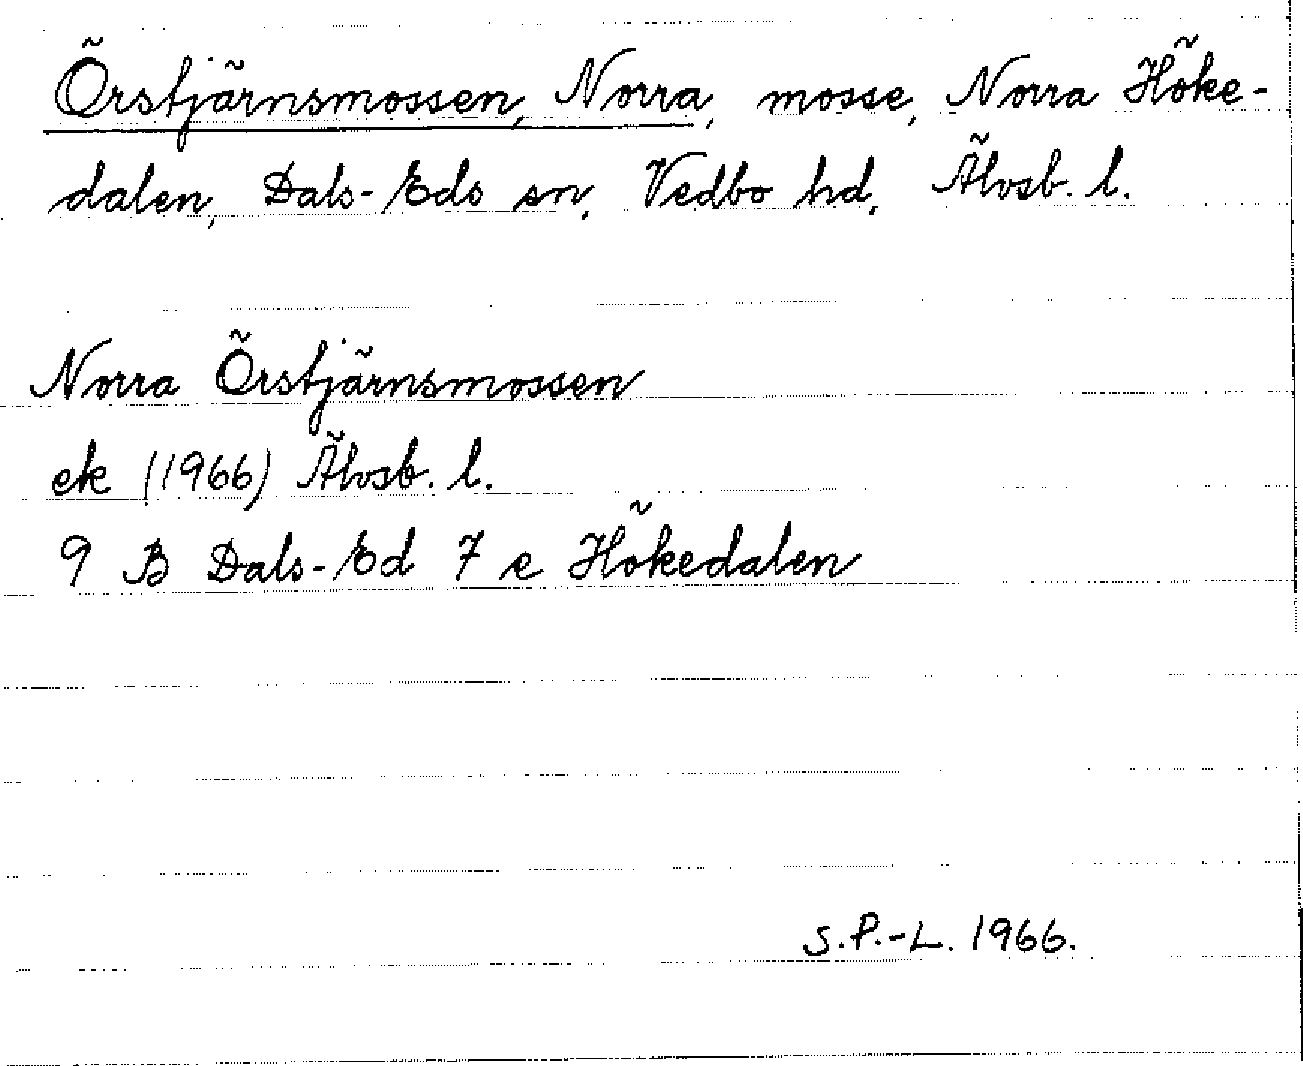 Örstjärnsmossen, Norra, mosse, Norra Höke-
dalen, Dals-Eds sn, Vedbo hd, Älvsb. l.
Norra Örstjärnsmossen
ek (1966) Älvsb. l.
9 B Dals-Ed 7 e Hökedalen
S.P.-L. 1966.